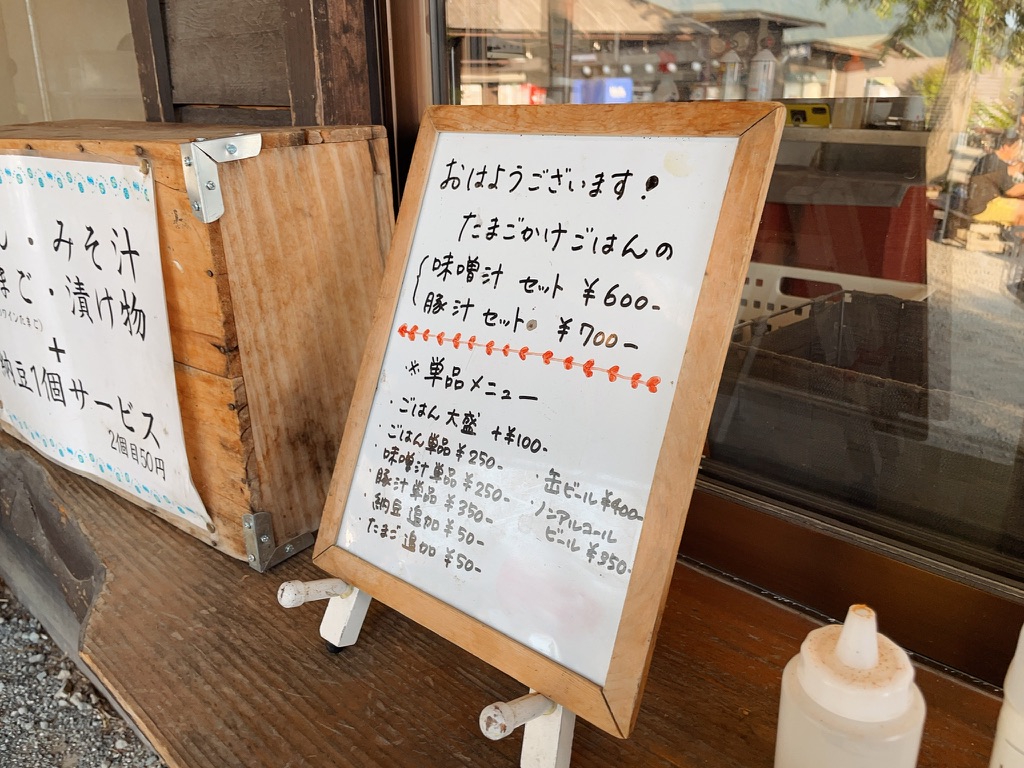 ・みそ汁
・漬け物
+
納豆1個サービス
2個目50円
おはようございます!
たまごかけごはんの
味噌汁 セット ¥600-
豚汁 セット ¥700-
※ 単品メニュー
・ごはん 大盛 +¥100-
・ごはん単品 ¥250-
味噌汁単品 ¥250-
・豚汁単品 ¥350-
・納豆 追加 ¥50-
・たまご 追加 ¥50-
・缶ビール ¥400-
・ノンアルコール
ビール ¥350-